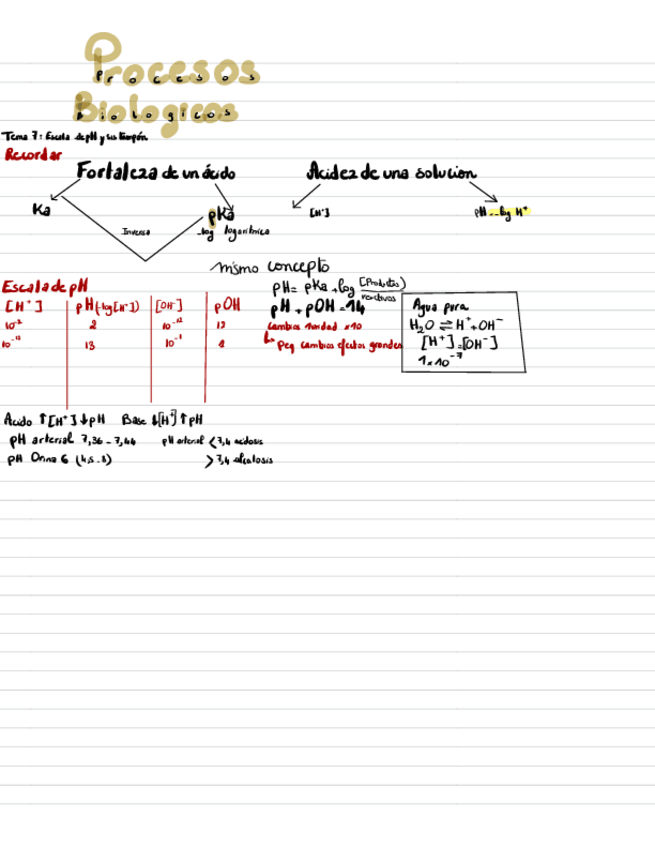 Procesos
Biologicos
Tema 7: Escala de pH y sus tampón
Recordar
Fortaleza de un ácido
Acidez de una solucion
Ka
Inversa
pKa
-log logaritmica
[H⁺]
pH = -log H⁺
mismo concepto
Escala de pH
[H⁺] pH (-log[H⁺]) [OH⁻] pOH
10⁻² 2 10⁻¹² 12
10⁻¹³ 13 10⁻¹
pH = pKa + log [Productos]
reactivos
pH + pOH = 14
Cambios 1 unidad x10
↳ Peq cambios efectos grandes
Agua pura
H₂O ⇌ H⁺ + OH⁻
[H⁺] = [OH⁻]
1x10⁻⁷
Acido ↑[H⁺] ↓pH Base ↓[H⁺] ↑pH
pH arterial 7,36 - 7,44 pH arterial < 7,4 acidosis
pH Orina 6 (4,5 - 8) > 7,4 alcalosis